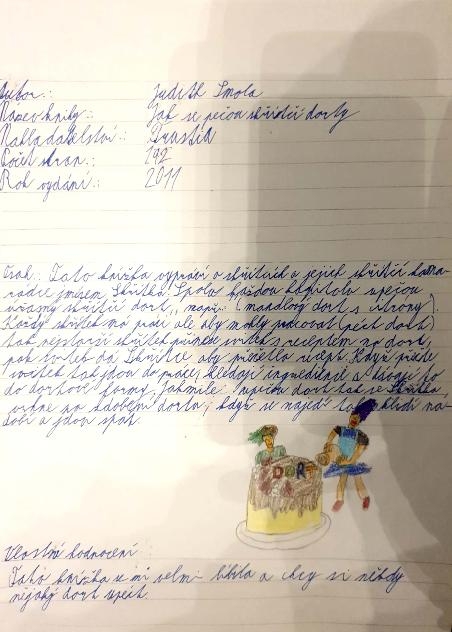 Autor.: Judith Smola
Název knihy.: Jak se pečou skřítčí dorty
Nakladatelství.: Drastia
Počet stran.: 192
Rok vydání.: 2011
Tato knížka vypráví o skřítcích a jejich skřítčí kama
rádce jménem Skřítka. Spolu každou kapitolu upečou
úžasný skřítčí dort, např. (mandlový dort s citrony).
Každý skřítek má práci ale aby mohly pracovat (péct dort)
tak nejstarší skřítek přinese svitek s receptem na dort,
pak svitek dá Skřítce aby přečetla recept. Když přečte
svitek tak jdou do práce, hledají ingredience a lívají to
do dortové formy, Jakmile upečou dort tak se Skřítka
vrhne na zdobení dortu, když se najedí tak uklidí ná
dobí a jdou spát.
DORT
Vlastní hodnocení
Tato knížka se mi velmi líbila a chcy si někdy
nějaký dort upéct.